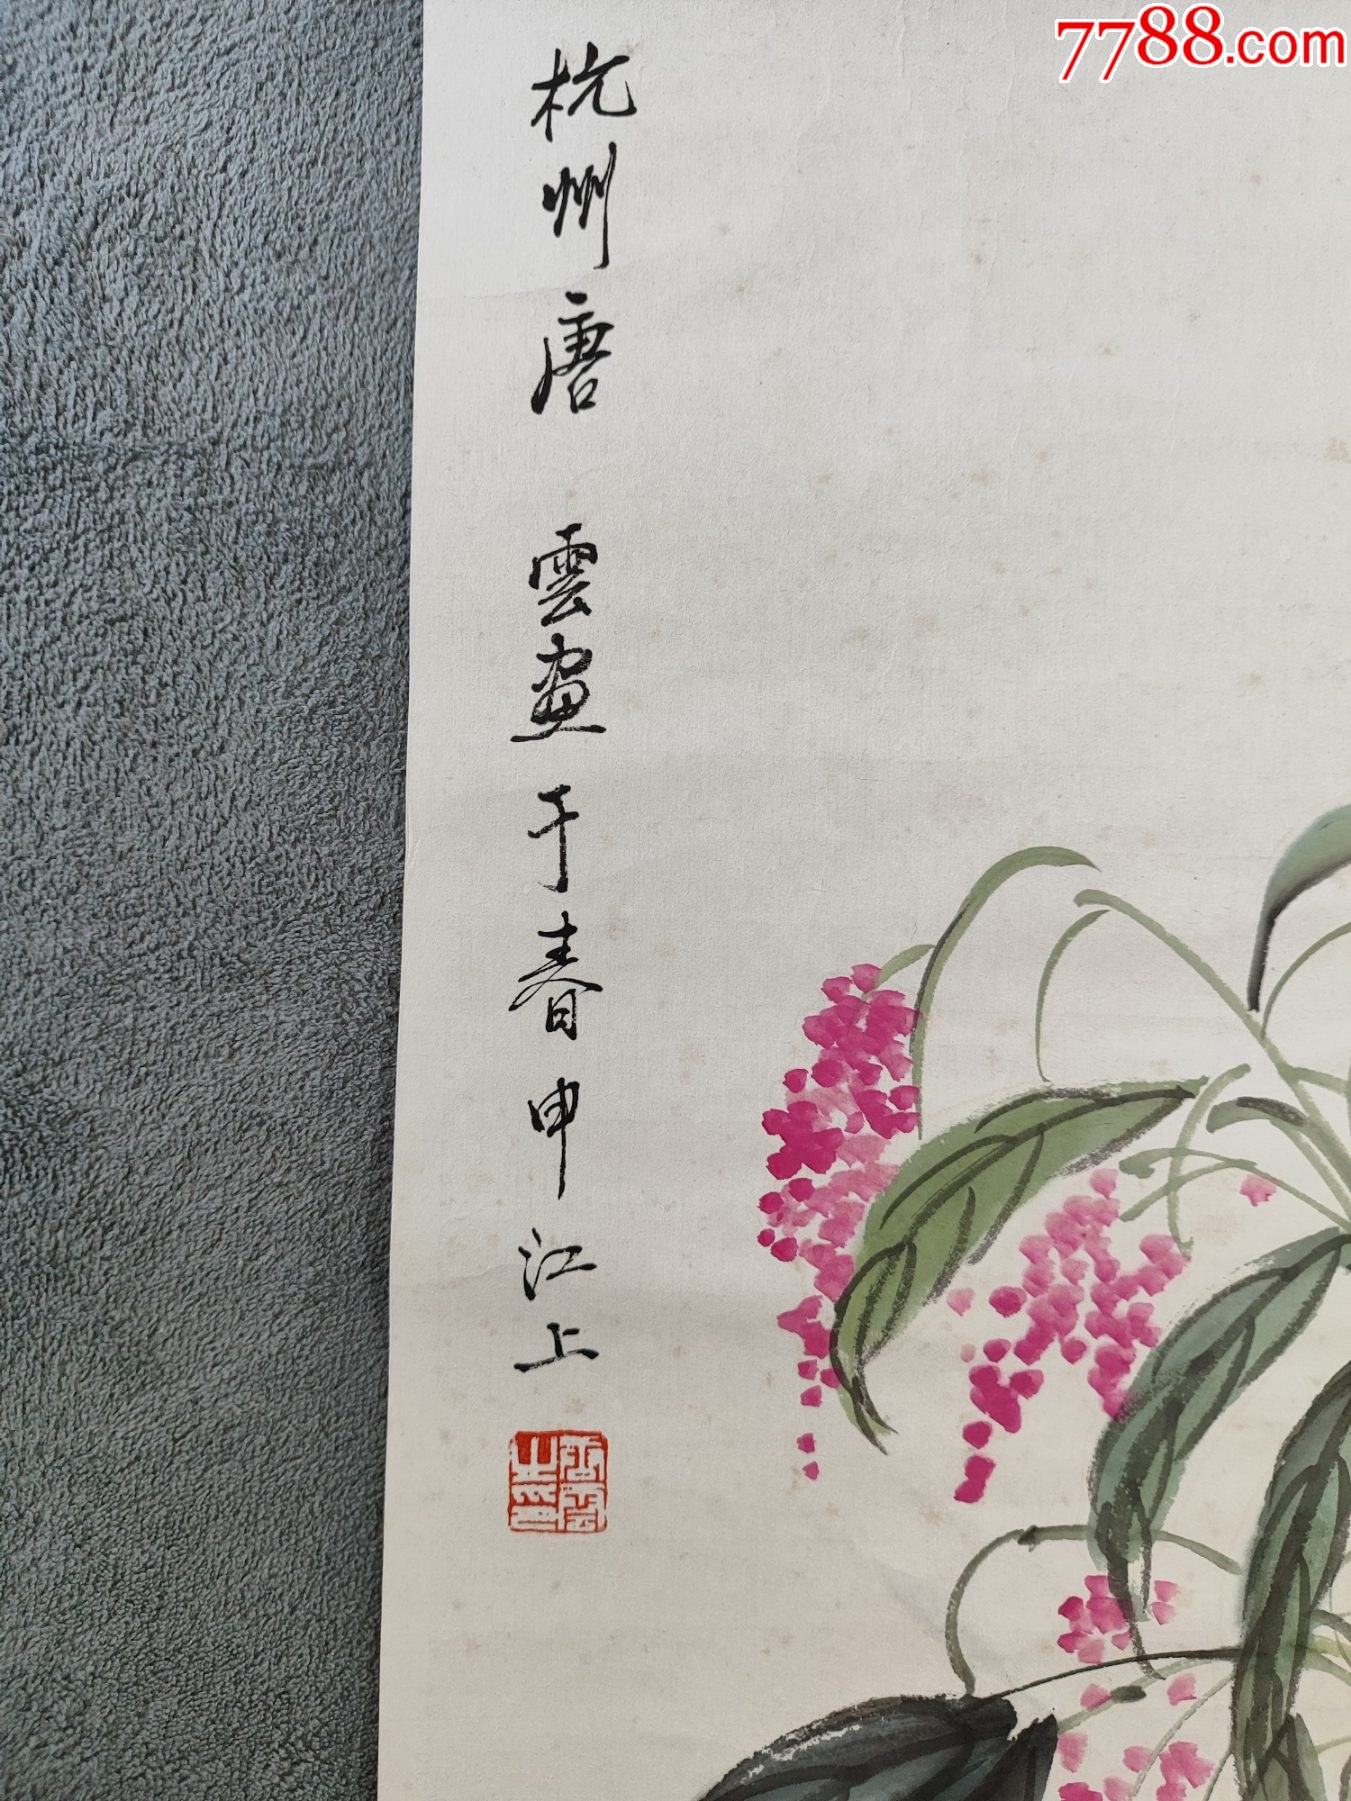 7788.com
杭州唐 雲画于春申江上